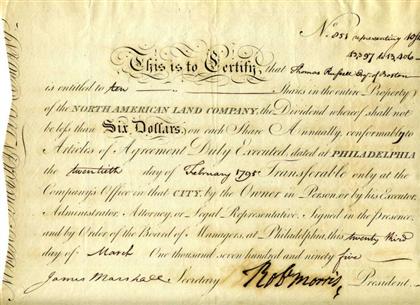 No. 851 representing 10
13,397 to 13,406
This is to Certify, that Thomas Russell Esqr. of Boston
is entitled to ten Shares in the entire Property
of the NORTH AMERICAN LAND COMPANY, the Dividend whereof shall not
be less than Six Dollars, on each Share Annually, conformably to
Articles of Agreement Duly Executed, dated at PHILADELPHIA
the twentieth day of February 1795 Transferable only at the
Company's Office in that CITY, by the Owner in Person, or by his Executor,
Administrator, Attorney, or Legal Representative. Signed in the presence,
and by Order of the Board of Managers, at Philadelphia, this twenty third
day of March One thousand seven hundred and ninety five
James Marshall Secretary Robt Morris, President